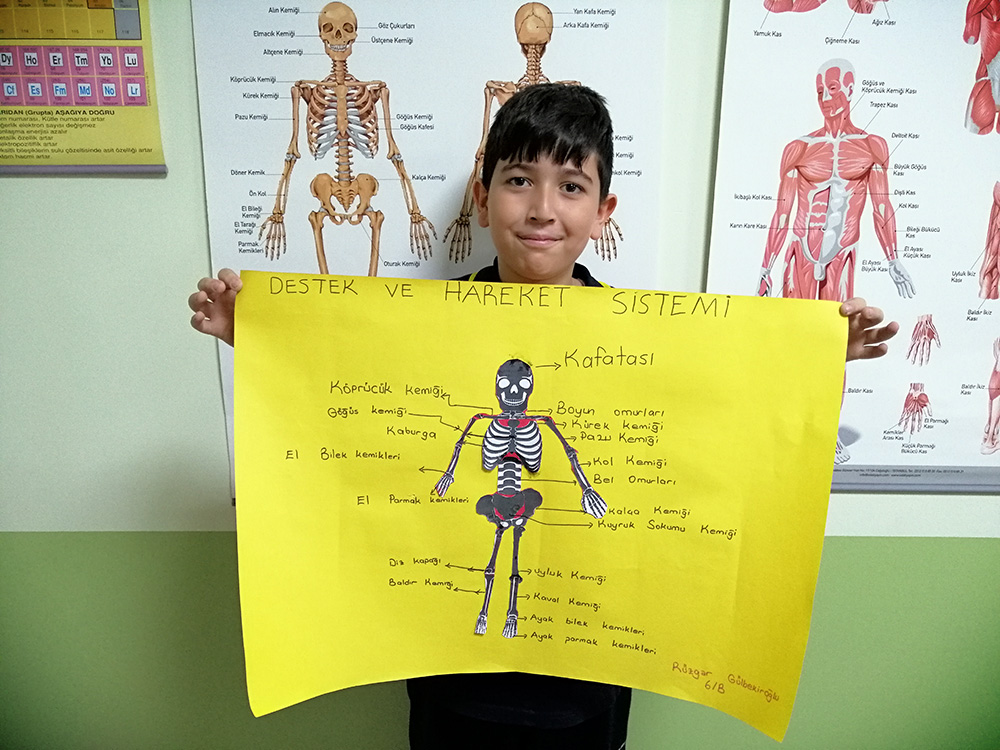 Alın Kemiği
Elmacık Kemiği
Altçene Kemiği
Göz Çukurları
Üstçene Kemiği
Köprücük Kemiği
Kürek Kemiği
Pazu Kemiği
Göğüs Kemiği
Göğüs Kafesi
Döner Kemik
Ön Kol
Kalça Kemiği
El Bileği
Kemiği
El Tarağı
Kemiği
Parmak
Kemikleri
Oturak Kemiği
Yan Kafa Kemiği
Arka Kafa Kemiği
Dy Ho Er Tm Yb Lu
Cf Es Fm Md No Lr
ARIDAN (Grupta) AŞAĞIYA DOĞRU
numarası, Kütle numarası artar
elektron sayısı değişmez
enerjisi azalır
özellik artar
bileşiklerin sulu çözeltisinde asit özelliği artar
hacmi artar
Yamuk Kas
Çiğneme Kası
Ağız
Kası
Göğüs ve
Köprücük Kemiği Kası
Trapez Kası
Deltoit Kası
Büyük Göğüs
Kası
Dişli Kas
Kol Kası
İkibaşlı Kol Kası
Karın Kare Kası
Bileği Bükücü
Kas
El Ayası
Küçük Kas
El Ayası
Büyük Kas
Uyluk İkiz
Kası
Baldır Kası
Baldır İkiz
Kası
El Parmağı
Kası
Kemikler
Arası Kas
Küçük Parmağı
Bükücü Kas
DESTEK VE HAREKET SİSTEMİ
Kafatası
Köprücük kemiği
Göğüs kemiği
Kaburga
El Bilek kemikleri
El Parmak kemikleri
Boyun omurları
Kürek kemiği
Pazu Kemiği
Kol Kemiği
Bel omurları
Kalça Kemiği
Kuyruk Sokumu Kemiği
Diz kapağı
Baldır Kemiği
Uyluk Kemiği
Kaval Kemiği
Ayak bilek kemikleri
Ayak parmak kemikleri
Rüzgar Gülbeziroğlu
6/B